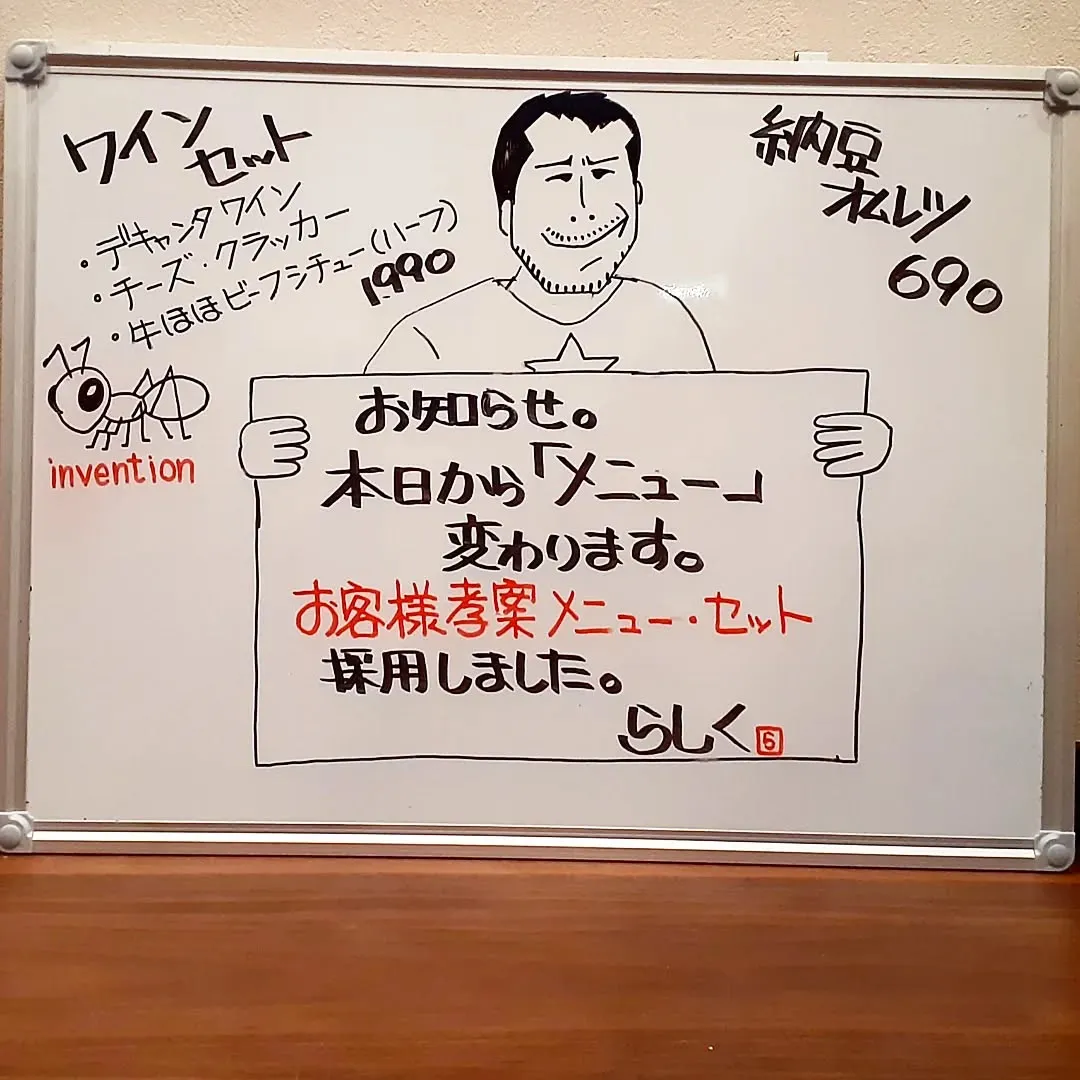 ワイン
セット
・デキャンタワイン
・チーズ・クラッカー
・牛ほほビーフシチュー(ハーフ)
1.990
invention
納豆
オムレツ
690
お知らせ。
本日から「メニュー」
変わります。
お客様孝案メニュー・セット
採用しました。
らしく 6